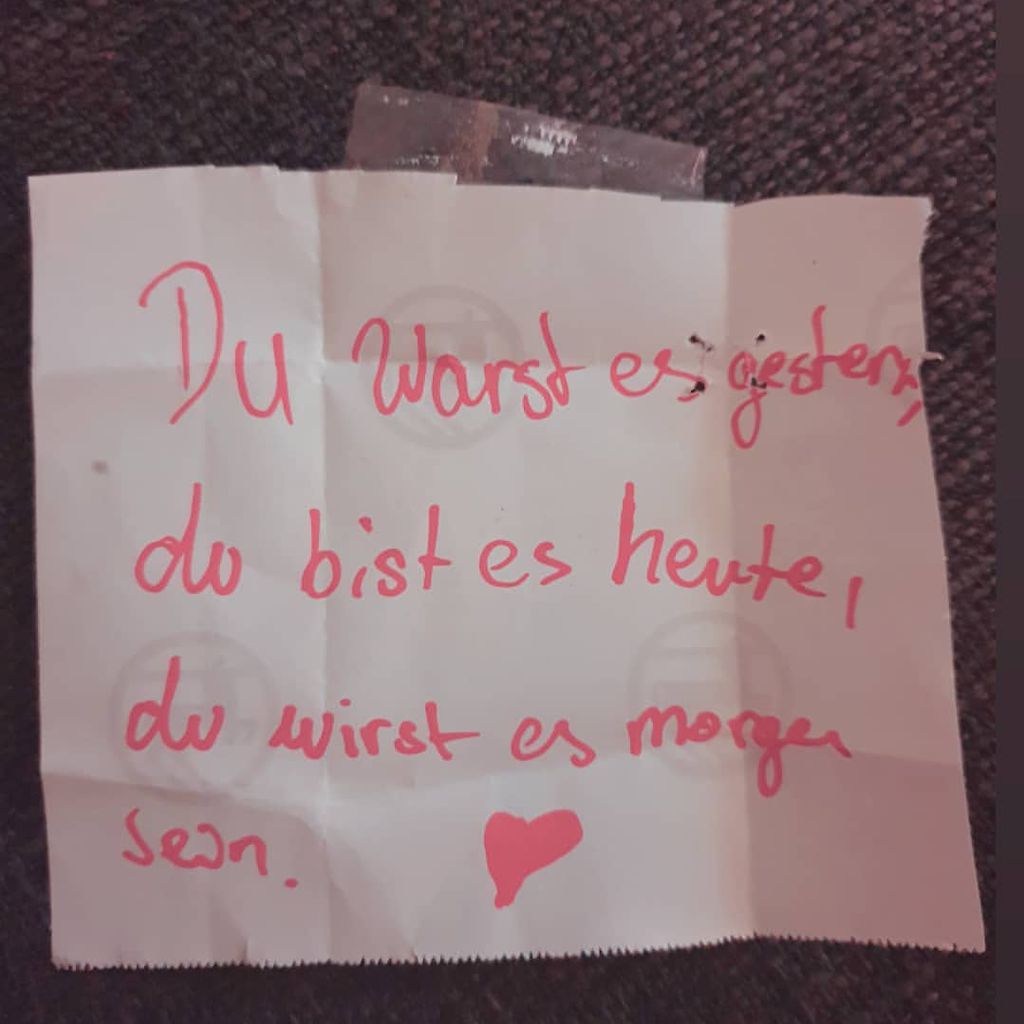 Du warst es gestern,
du bist es heute,
du wirst es morgen
sein.